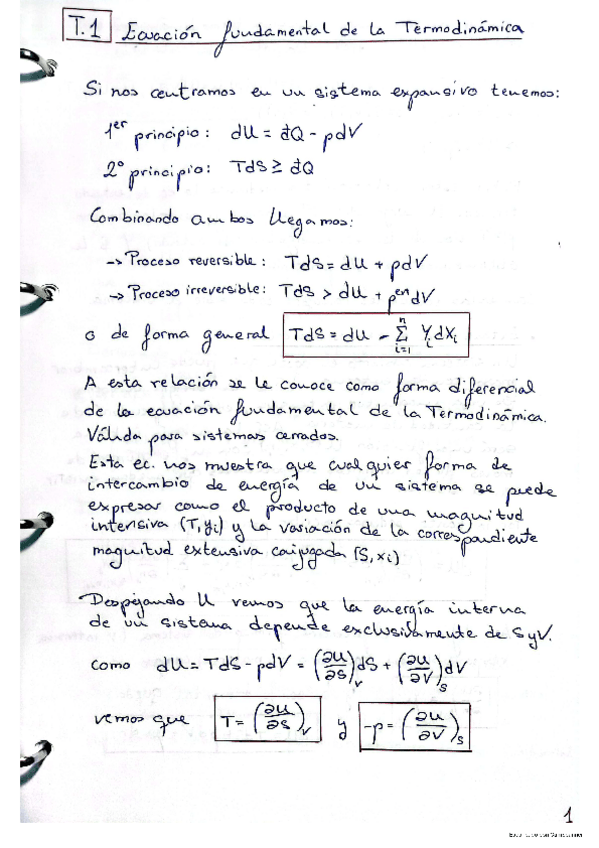 T.1 Ecuación fundamental de la Termodinámica
Si nos centramos en un sistema expansivo tenemos:
1er principio: dU = đQ - pdV
2º principio: TdS ≥ đQ
Combinando ambos llegamos:
-> Proceso reversible: TdS = dU + pdV
-> Proceso irreversible: TdS > dU + p^en dV
o de forma general TdS = dU - Σ_{i=1}^{n} Y_i dX_i
A esta relación se le conoce como forma diferencial
de la ecuación fundamental de la Termodinámica.
Válida para sistemas cerrados.
Esta ec. nos muestra que cualquier forma de
intercambio de energía de un sistema se puede
expresar como el producto de una magnitud
intensiva (T, yi) y la variación de la correspondiente
magnitud extensiva conjugada (S, xi)
Despejando U vemos que la energía interna
de un sistema depende exclusivamente de S y V.
como dU = TdS - pdV = (∂U/∂S)_V dS + (∂U/∂V)_S dV
vemos que T = (∂U/∂S)_V y -p = (∂U/∂V)_S
1